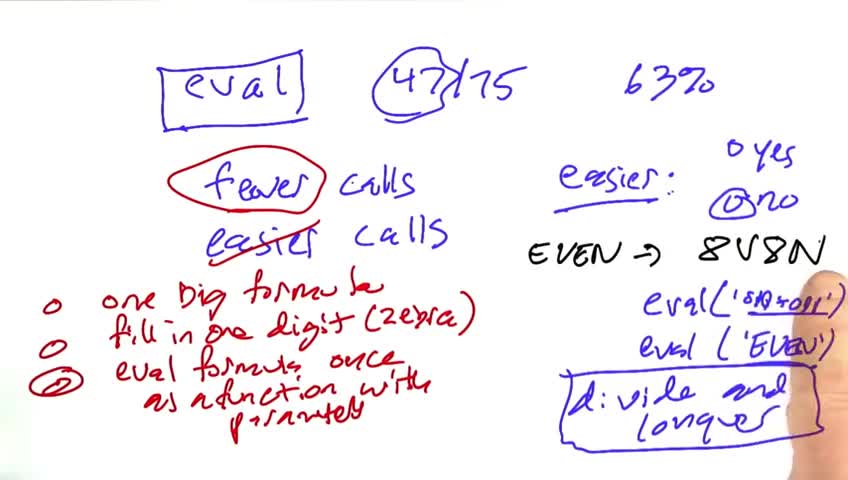 eval 47/75 63%
fewer calls
easier calls
easier:
o yes
o no
EVEN → 8V8N
o one big formula
o fill in one digit (zebra)
o eval formula once
as a function with
eval('EVEN')
divide and
conquer